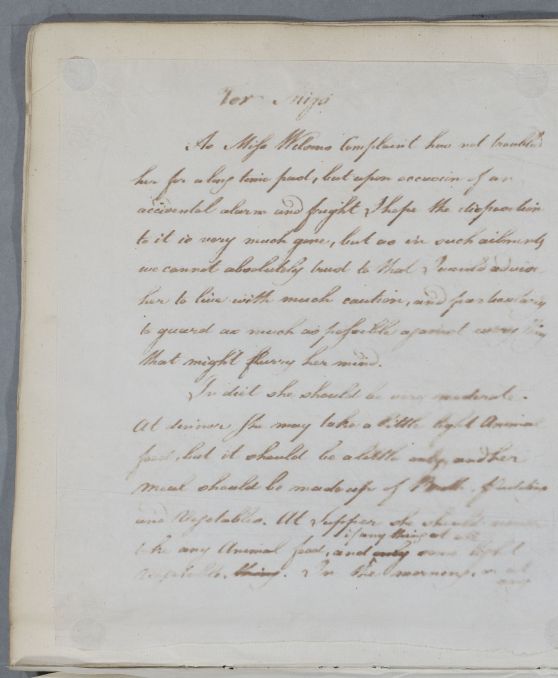 For Miss
As Miss Wilsons Complaint has not troubled
her for a long time past, but upon occasion of an
accidental alarm and fright I hope the disposition
to it is very much gone, but as in such ailments
we cannot absolutely trust to that I would advise
her to live with much caution, and particularly
to guard as much as possible against every thing
that might flurry her mind.
In diet she should be very moderate.
At dinner She may take a little light Animal
food, but it should be a little only, and her
meal should be made up of Broth, Puddins
and Vegetables. At Supper she should never
if any thing at all
take any Animal food, and only some light
Vegetable thing. In the morning, or at
any